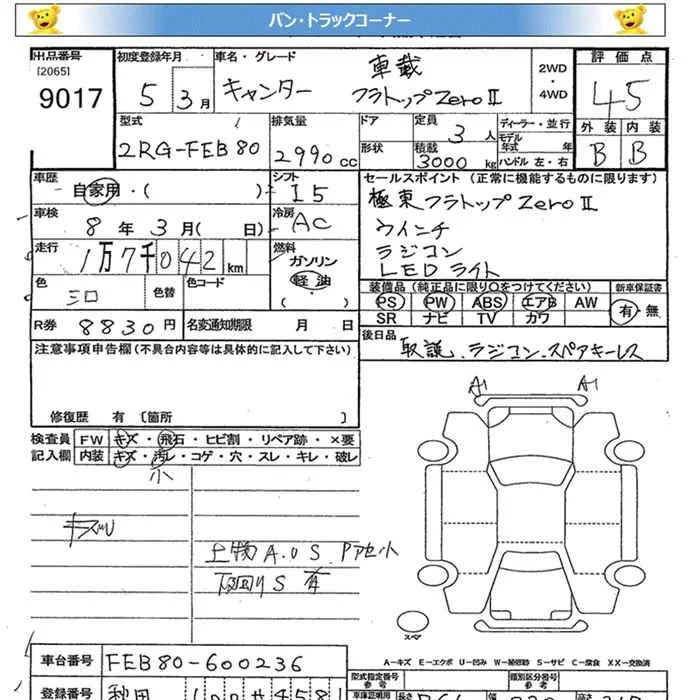 バン・トラックコーナー
出品番号 初度登録年月 車名・グレード 車載 2WD ・ 4WD 評価点
[2065]
9017 5 3月 キャンター フラトップZeroⅡ 4.5
型式 排気量 ドア 定員 3人 ディーラー・並行 外装 内装
モデル年式 年
2RG-FEB80 2990cc 形状 積載 3000kg ハンドル 左・右 B B
車歴 シフト セールスポイント(正常に機能するものに限ります)
自家用・( ) I5 極東フラトップZeroⅡ
車検 8年3月( 日) 冷房 AC ウインチ
走行 1万7千042km 燃料 ラジコン
ガソリン LEDライト
色 シロ 色替 色コード 軽油 装備品(純正品に限り〇をつけてください) 新車保証書
・( ) PS PW ABS エアB AW 有・無
R券 8830円 名変通知期限 月 日 SR ナビ TV カワ
注意事項申告欄(不具合内容等は具体的に記入して下さい) 後日品 取説.ラジコン.スペアキーレス
修復歴 有 〔箇所 〕
A1 A1
検査員 FW キズ・飛石・ヒビ割・リペア跡・×要
記入欄 内装 キズ・汚レ・コゲ・穴・スレ・キレ・破レ
小
上物A.U S.Pアセ小
下回りS 有
スペア
A-キズ E-エクボ U-凹み W-補修跡 S-サビ C-腐食 XX-交換済
車台番号 FEB80-600236 型式指定番号 参考 類別区分番号 参考
登録番号 秋田 車庫証明用 長さ 幅 高さ